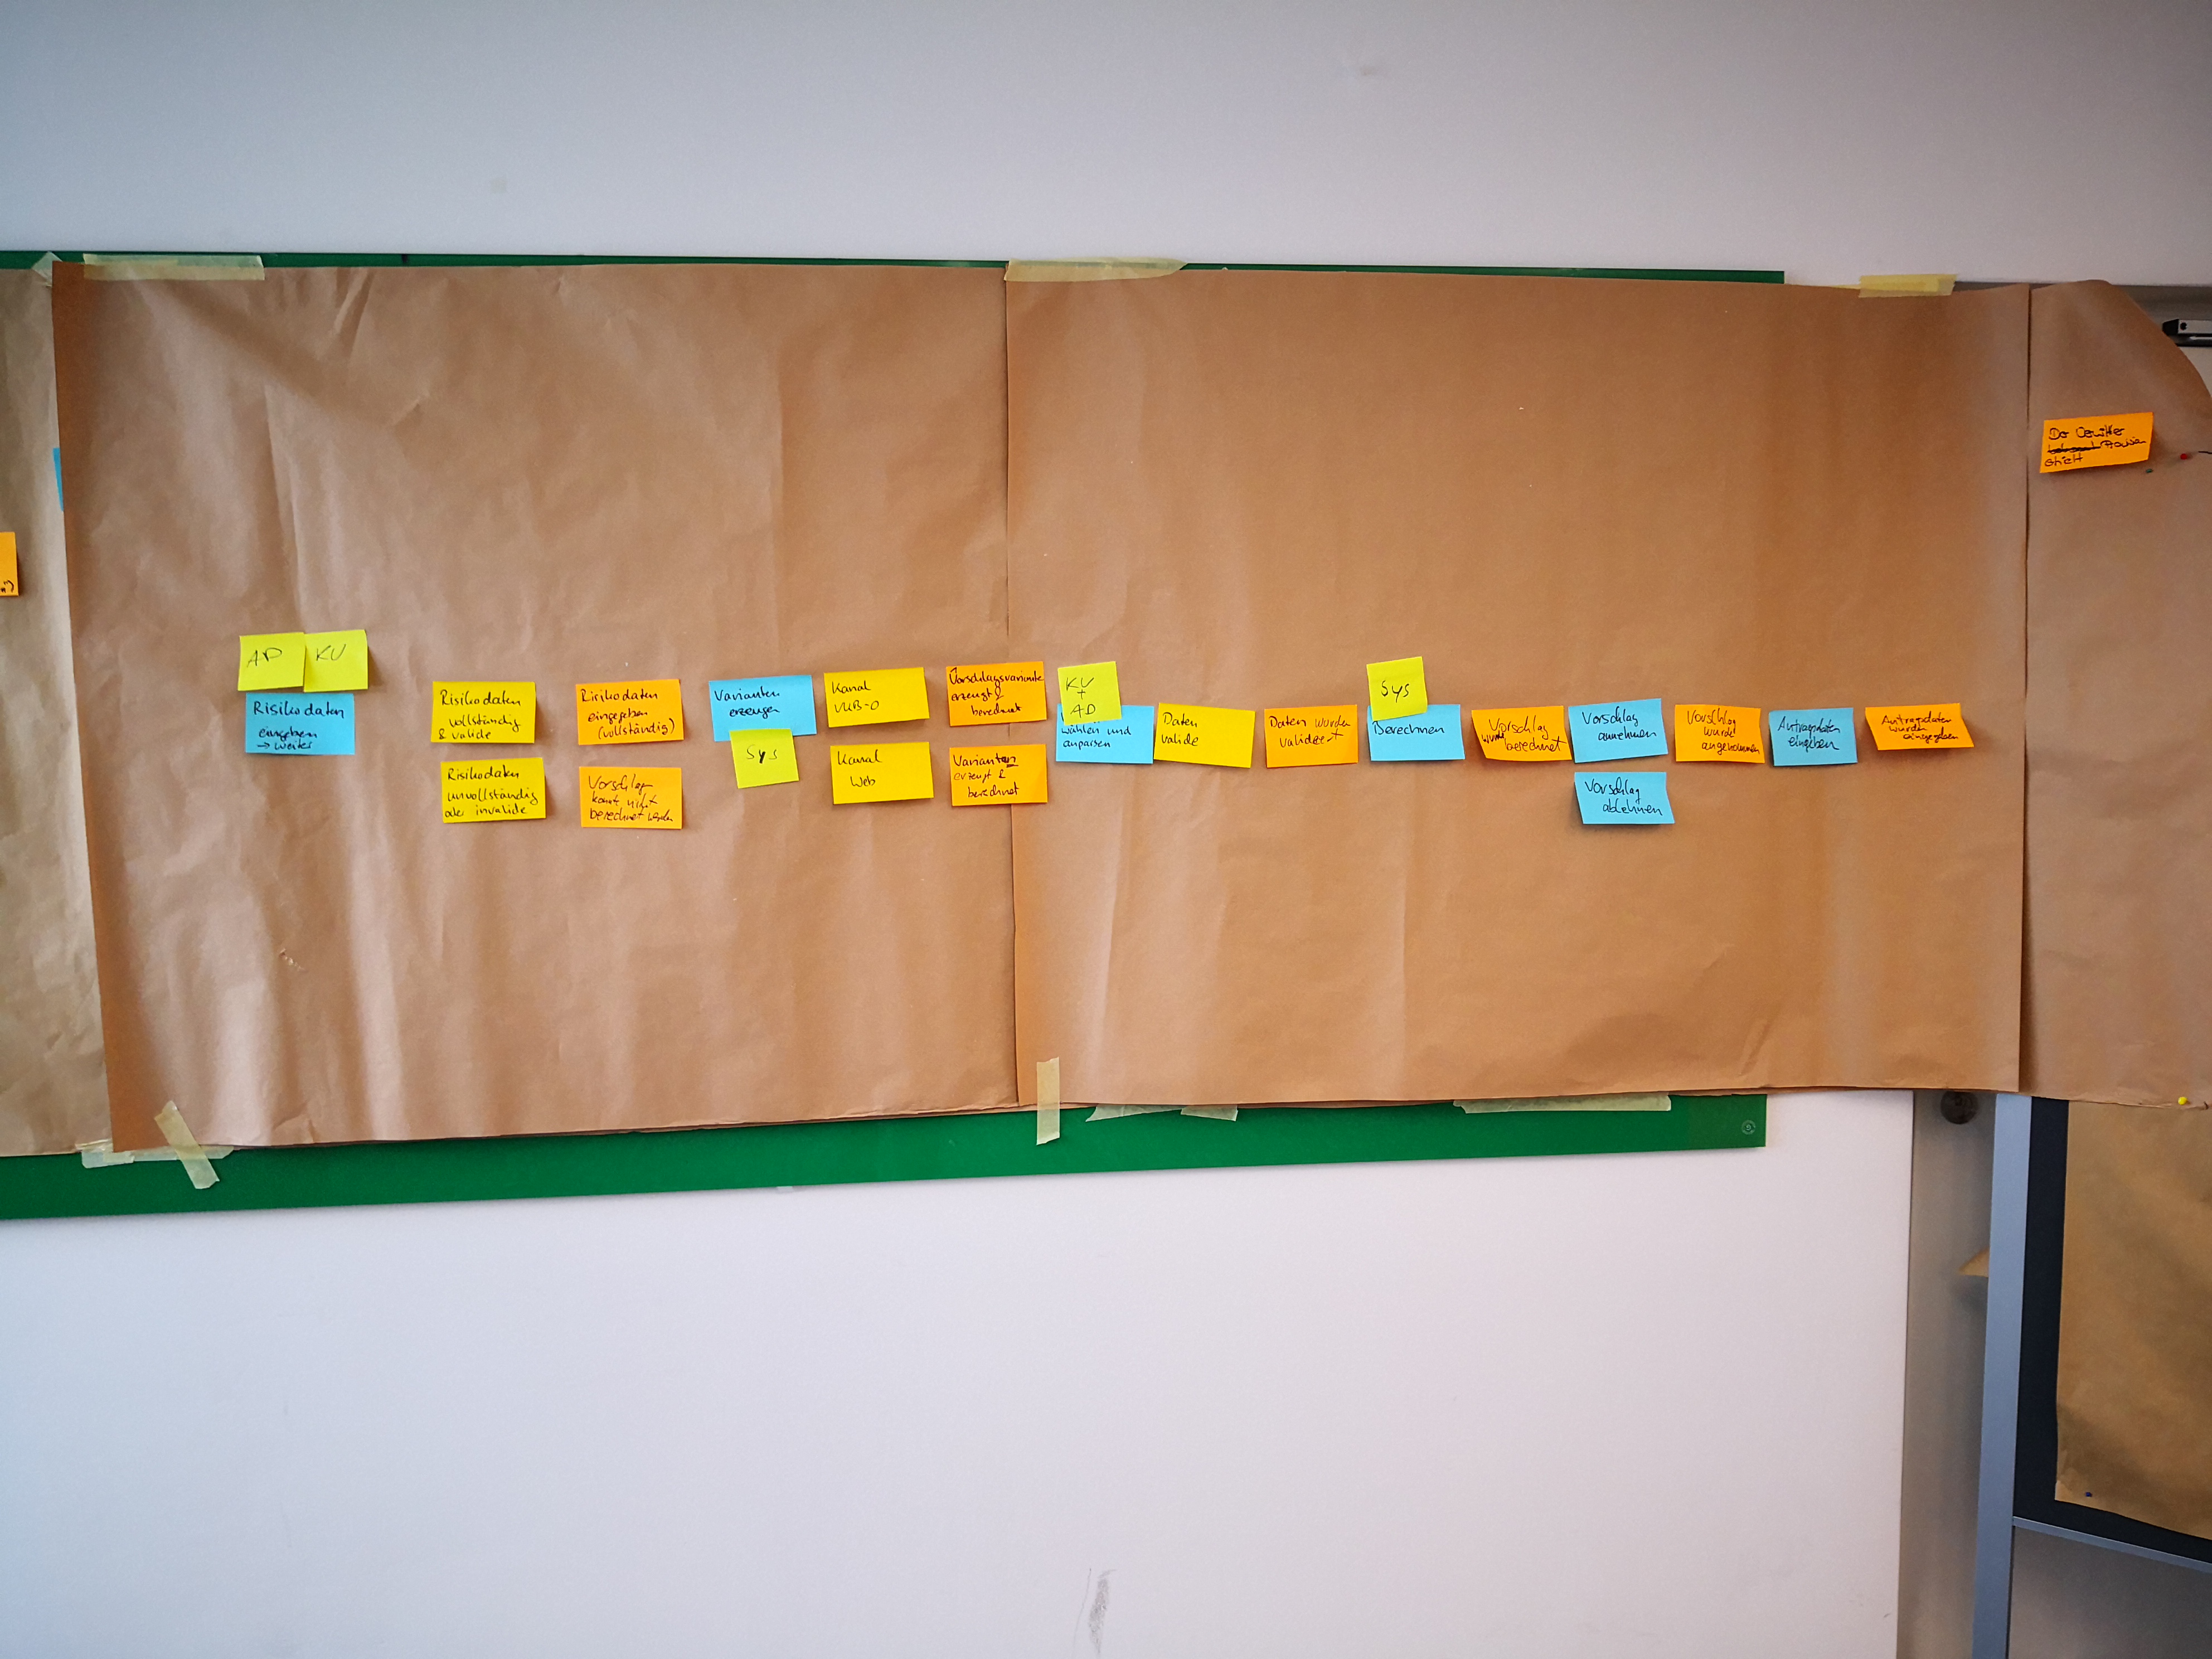 AD
KU
Risikodaten
eingeben
→ weiter
Risikodaten
vollständig
& valide
Risikodaten
unvollständig
oder invalide
Risikodaten
eingegeben
(vollständig)
Vorschlag
konnt nicht
berechnet werden
Varianten
erzeugen
Sys
Kanal
VKB-O
Kanal
Web
Vorschlagsvariante
erzeugt &
berechnet
Varianten
erzeugt &
berechnet
KU
+
AD
wählen und
anpassen
Daten
valide
Daten wurden
validiert
Sys
Berechnen
Vorschlag
wurde berechnet
Vorschlag
annehmen
Vorschlag
ablehnen
Vorschlag
wurde
angenommen
Antragsdaten
eingeben
Antragsdaten
wurden
eingegeben
Provision